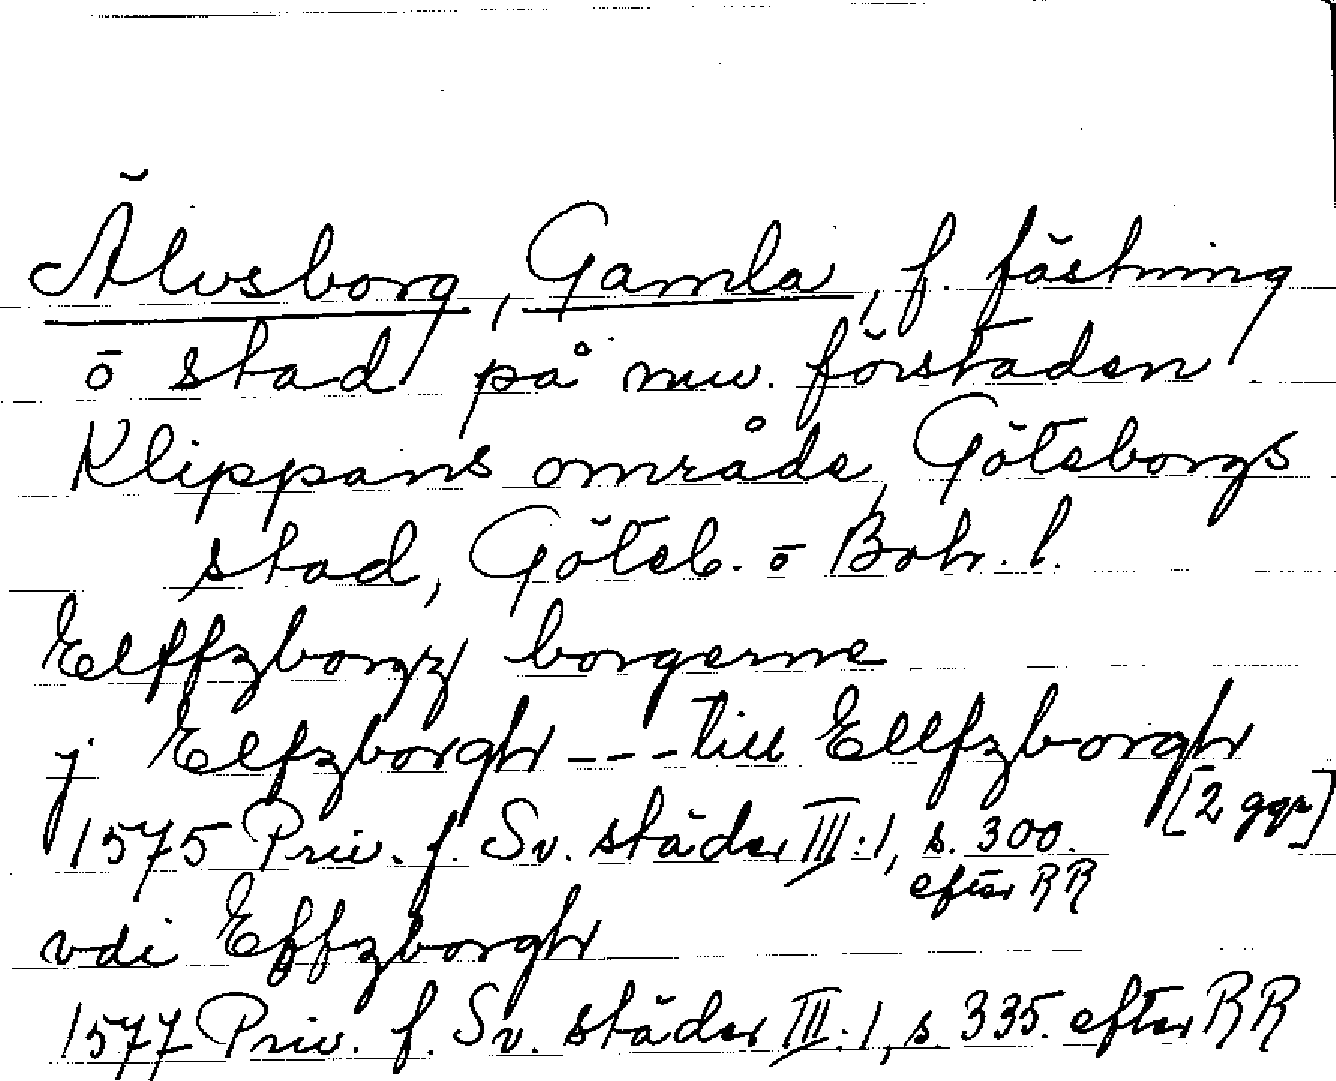 Älvsborg, Gamla, f. fästning
o stad på nuv. förstaden
Klippans område, Göteborgs
stad, Göteb. o Boh. l.
Elffzborgz borgerne
j Elfzborgh --- till Ellfzborgh
[2 ggr]
1575 Priv. f. Sv. städer III:1, s. 300.
efter RR
vdi Effzborgh
1577 Priv. f. Sv. städer III:1, s. 335. efter RR